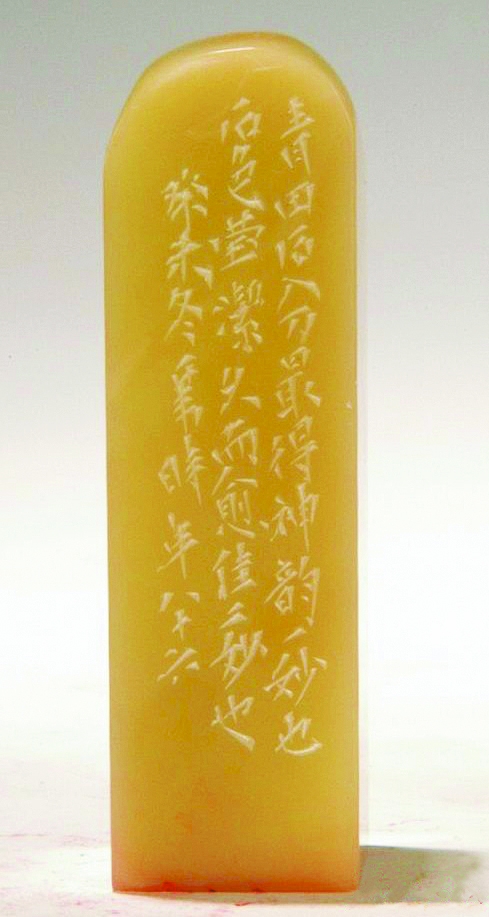 青田石入刀最得神韵一妙也
石色莹潔久而愈佳二妙也
癸未冬時年八十六